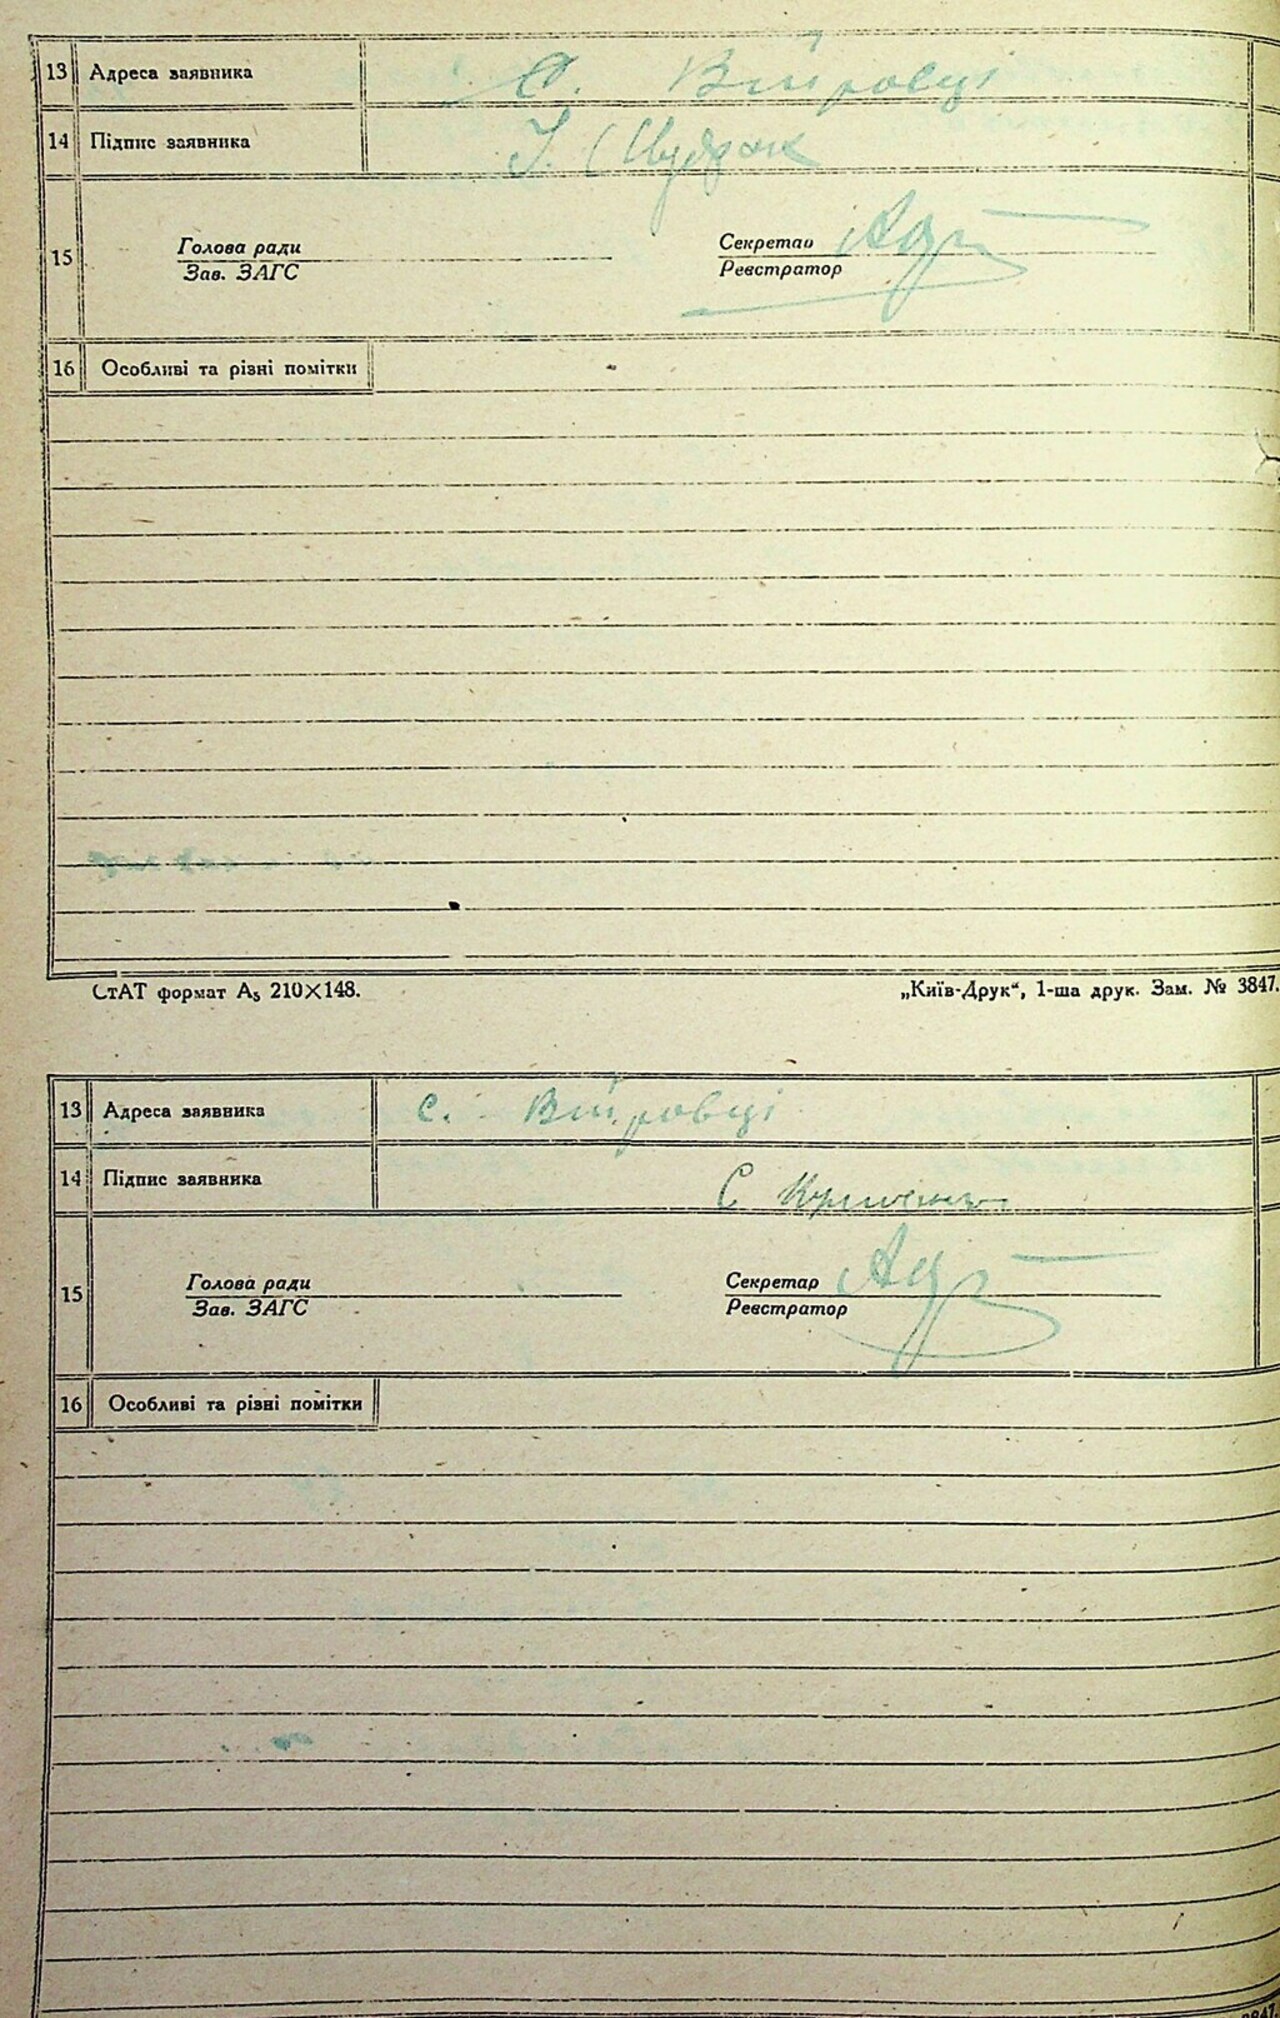 13 Адреса заявника С. Війтровці
14 Підпис заявника
Секретар
15 Голова ради
Зав. ЗАГС Реєстратор
16 Особливі та різні помітки
СтАТ формат А5 210×148. „Київ-Друк“, 1-ша друк. Зам. № 3847.
13 Адреса заявника с.
14 Підпис заявника С
15 Голова ради Секретар
Зав. ЗАГС Реєстратор
16 Особливі та різні помітки
3847.